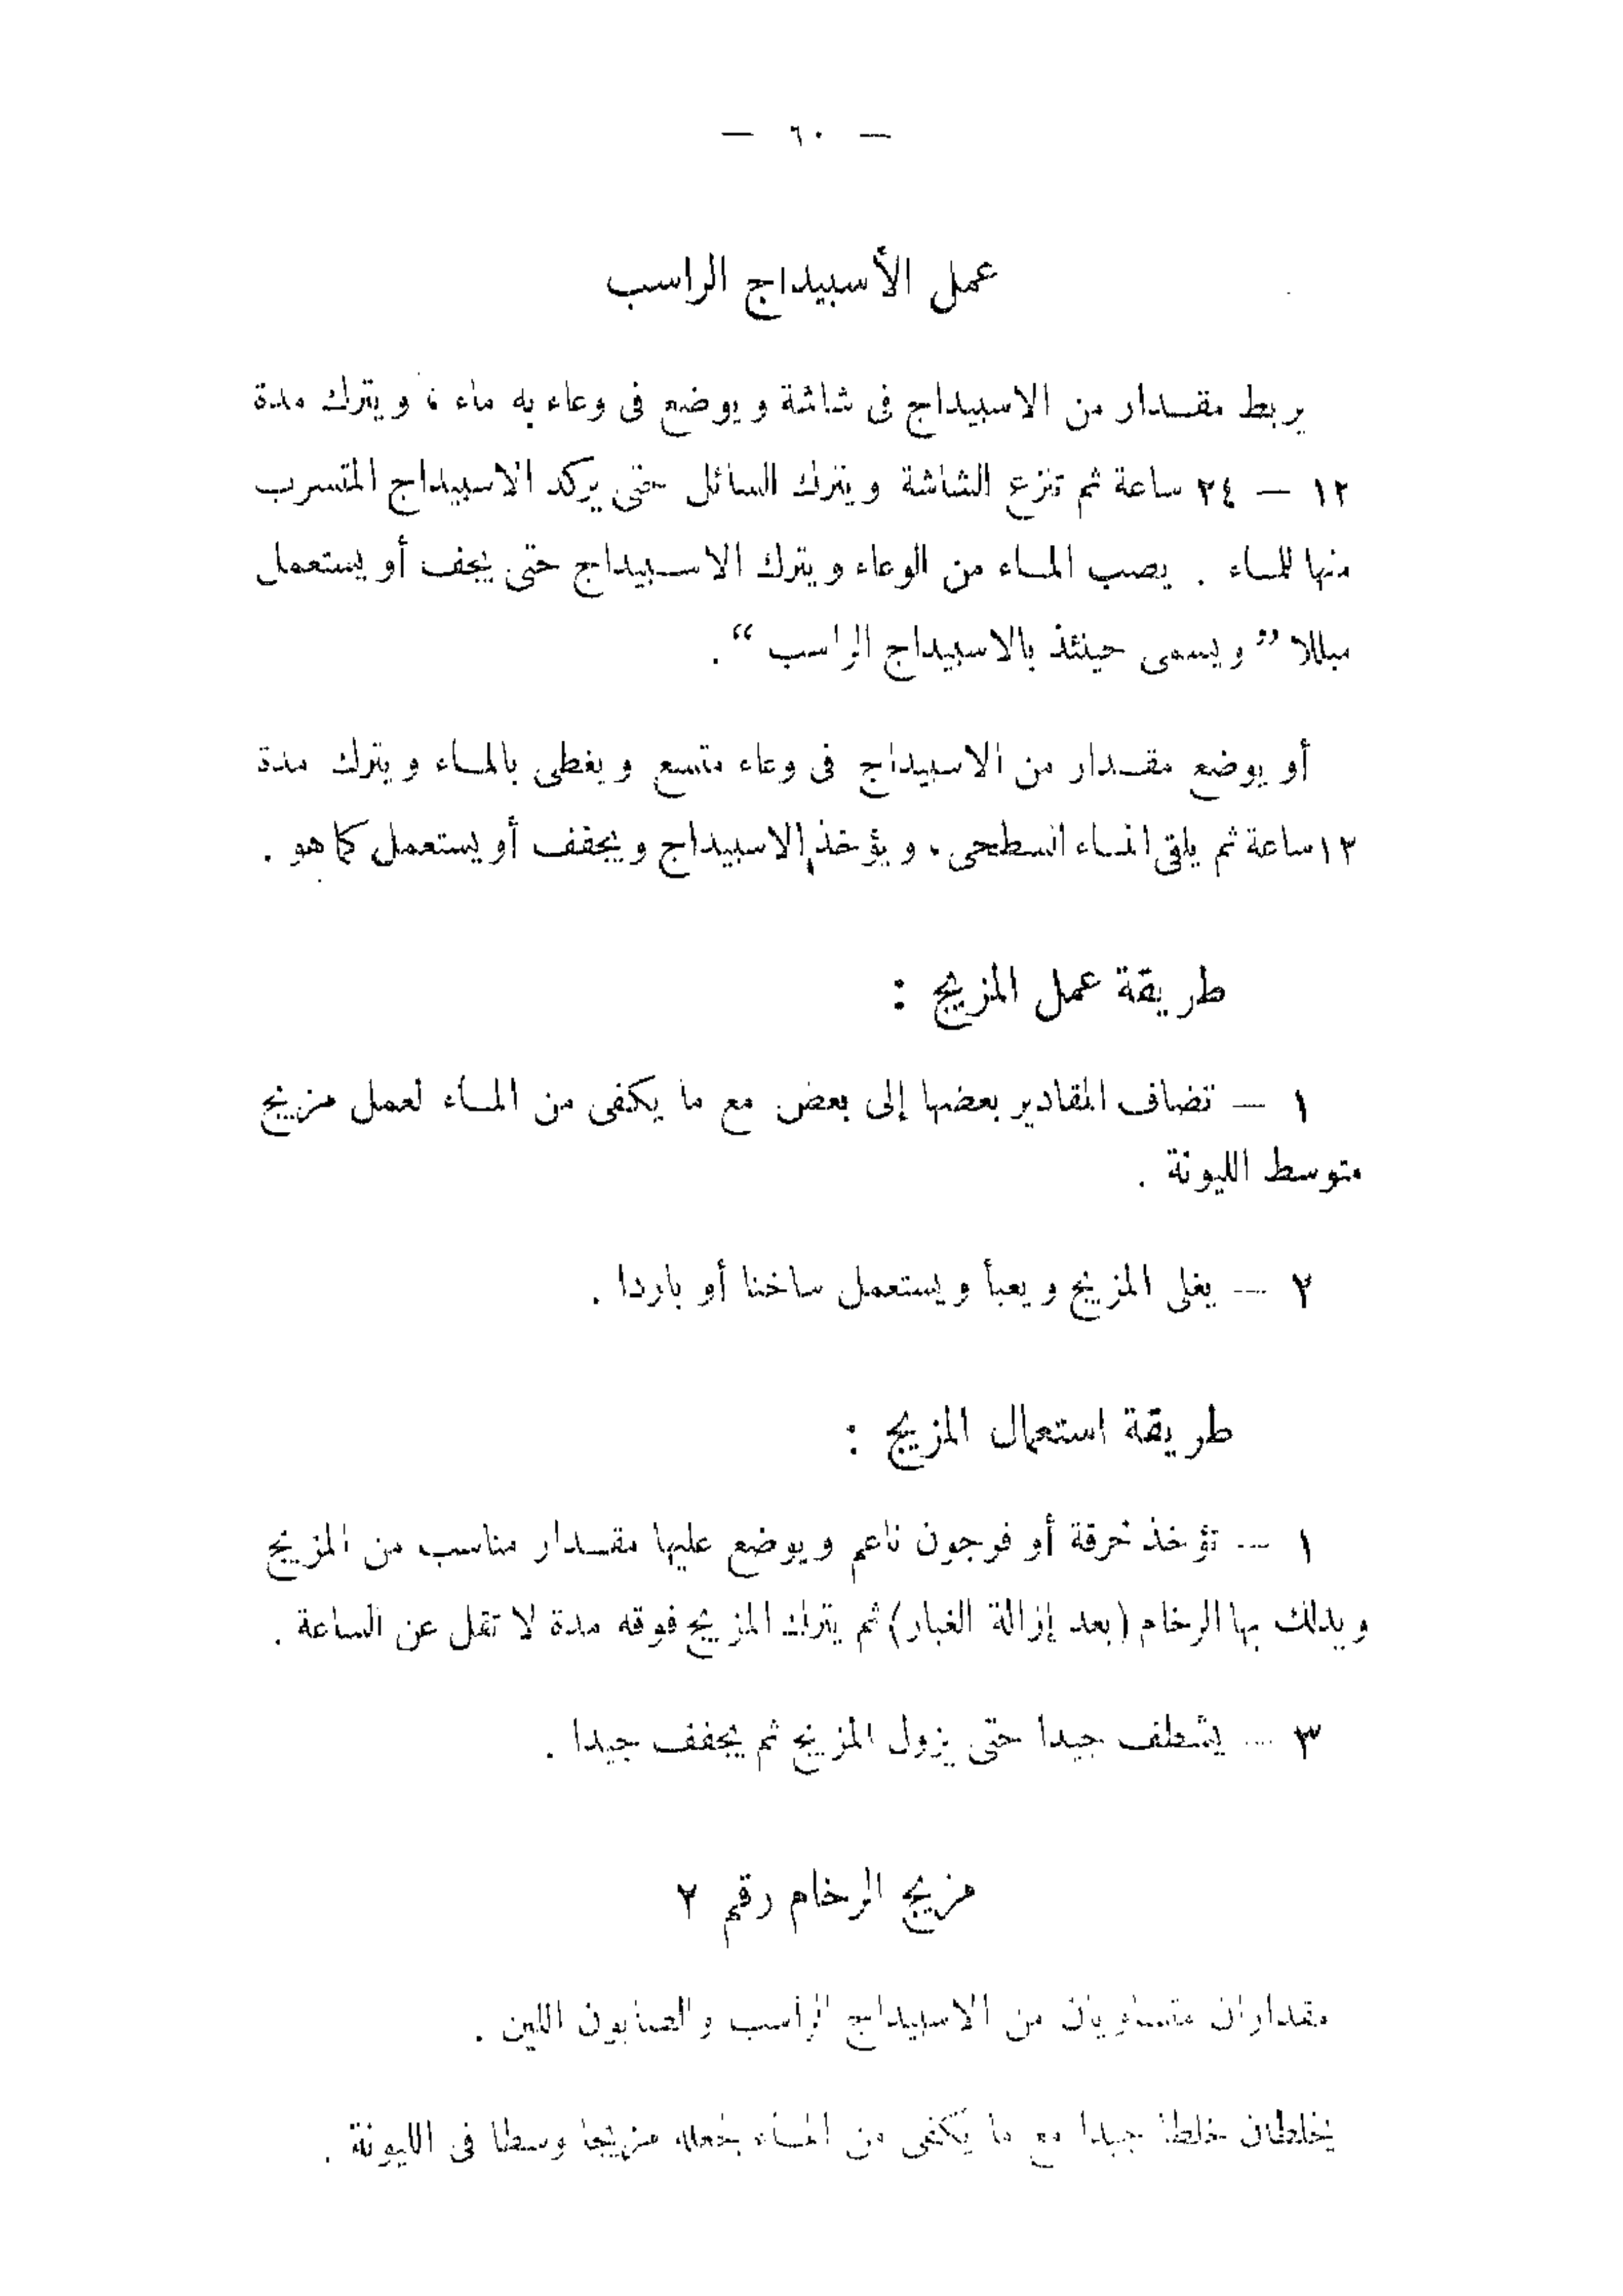 — ٦٠ —
عمل الأسبيداج الراسب
يربط مقدار من الاسبيداج فى شاشة ويوضع فى وعاء به ماء ، ويترك مدة
١٢ — ٢٤ ساعة ثم تنزع الشاشة ويترك السائل حتى يركد الاسبيداج المتسرب
منها للماء . يصب الماء من الوعاء ويترك الاسبيداج حتى يجف أو يستعمل
مبللا ”ويسمى حينئذ بالاسبيداج الراسب“ .
أو يوضع مقدار من الاسبيداج فى وعاء متسع ويغطى بالماء ويترك مدة
١٢ ساعة ثم يلقى الماء السطحى ، ويؤخذ الاسبيداج ويجفف أو يستعمل كما هو .
طريقة عمل المزيج :
١ — تضاف المقادير بعضها إلى بعض مع ما يكفى من الماء لعمل مزيج
متوسط الليونة .
٢ — يغلى المزيج ويعبأ ويستعمل ساخنا أو باردا .
طريقة استعمال المزيج :
١ — تؤخذ خرقة أو فرجون ناعم ويوضع عليها مقدار مناسب من المزيج
ويدلك بها الرخام (بعد إزالة الغبار) ثم يترك المزيج فوقه مدة لا تقل عن الساعة .
٣ — يشطف جيدا حتى يزول المزيج ثم يجفف جيدا .
مزيج الرخام رقم ٢
مقداران متساويان من الاسبيداج الراسب والصابون اللين .
يخلطان خلطا جيدا مع ما يكفى من الماء بجعله مزيجا وسطا فى الليونة .